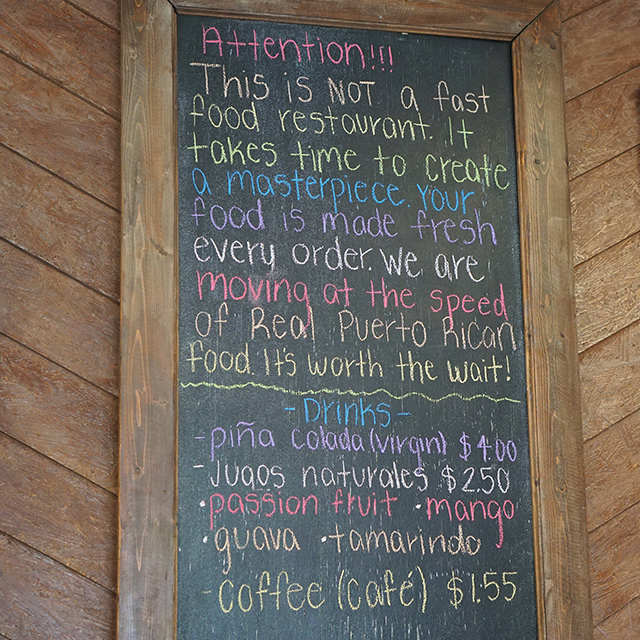 Attention!!!
This is NOT a fast
food restaurant. It
takes time to create
a masterpiece. Your
food is made fresh
every order. We are
moving at the speed
of Real Puerto Rican
food. It's worth the wait!
-Drinks-
-piña colada (virgin) $4.00
-Jugos naturales $2.50
·passion fruit ·mango
·guava ·tamarindo
-coffee (café) $1.55